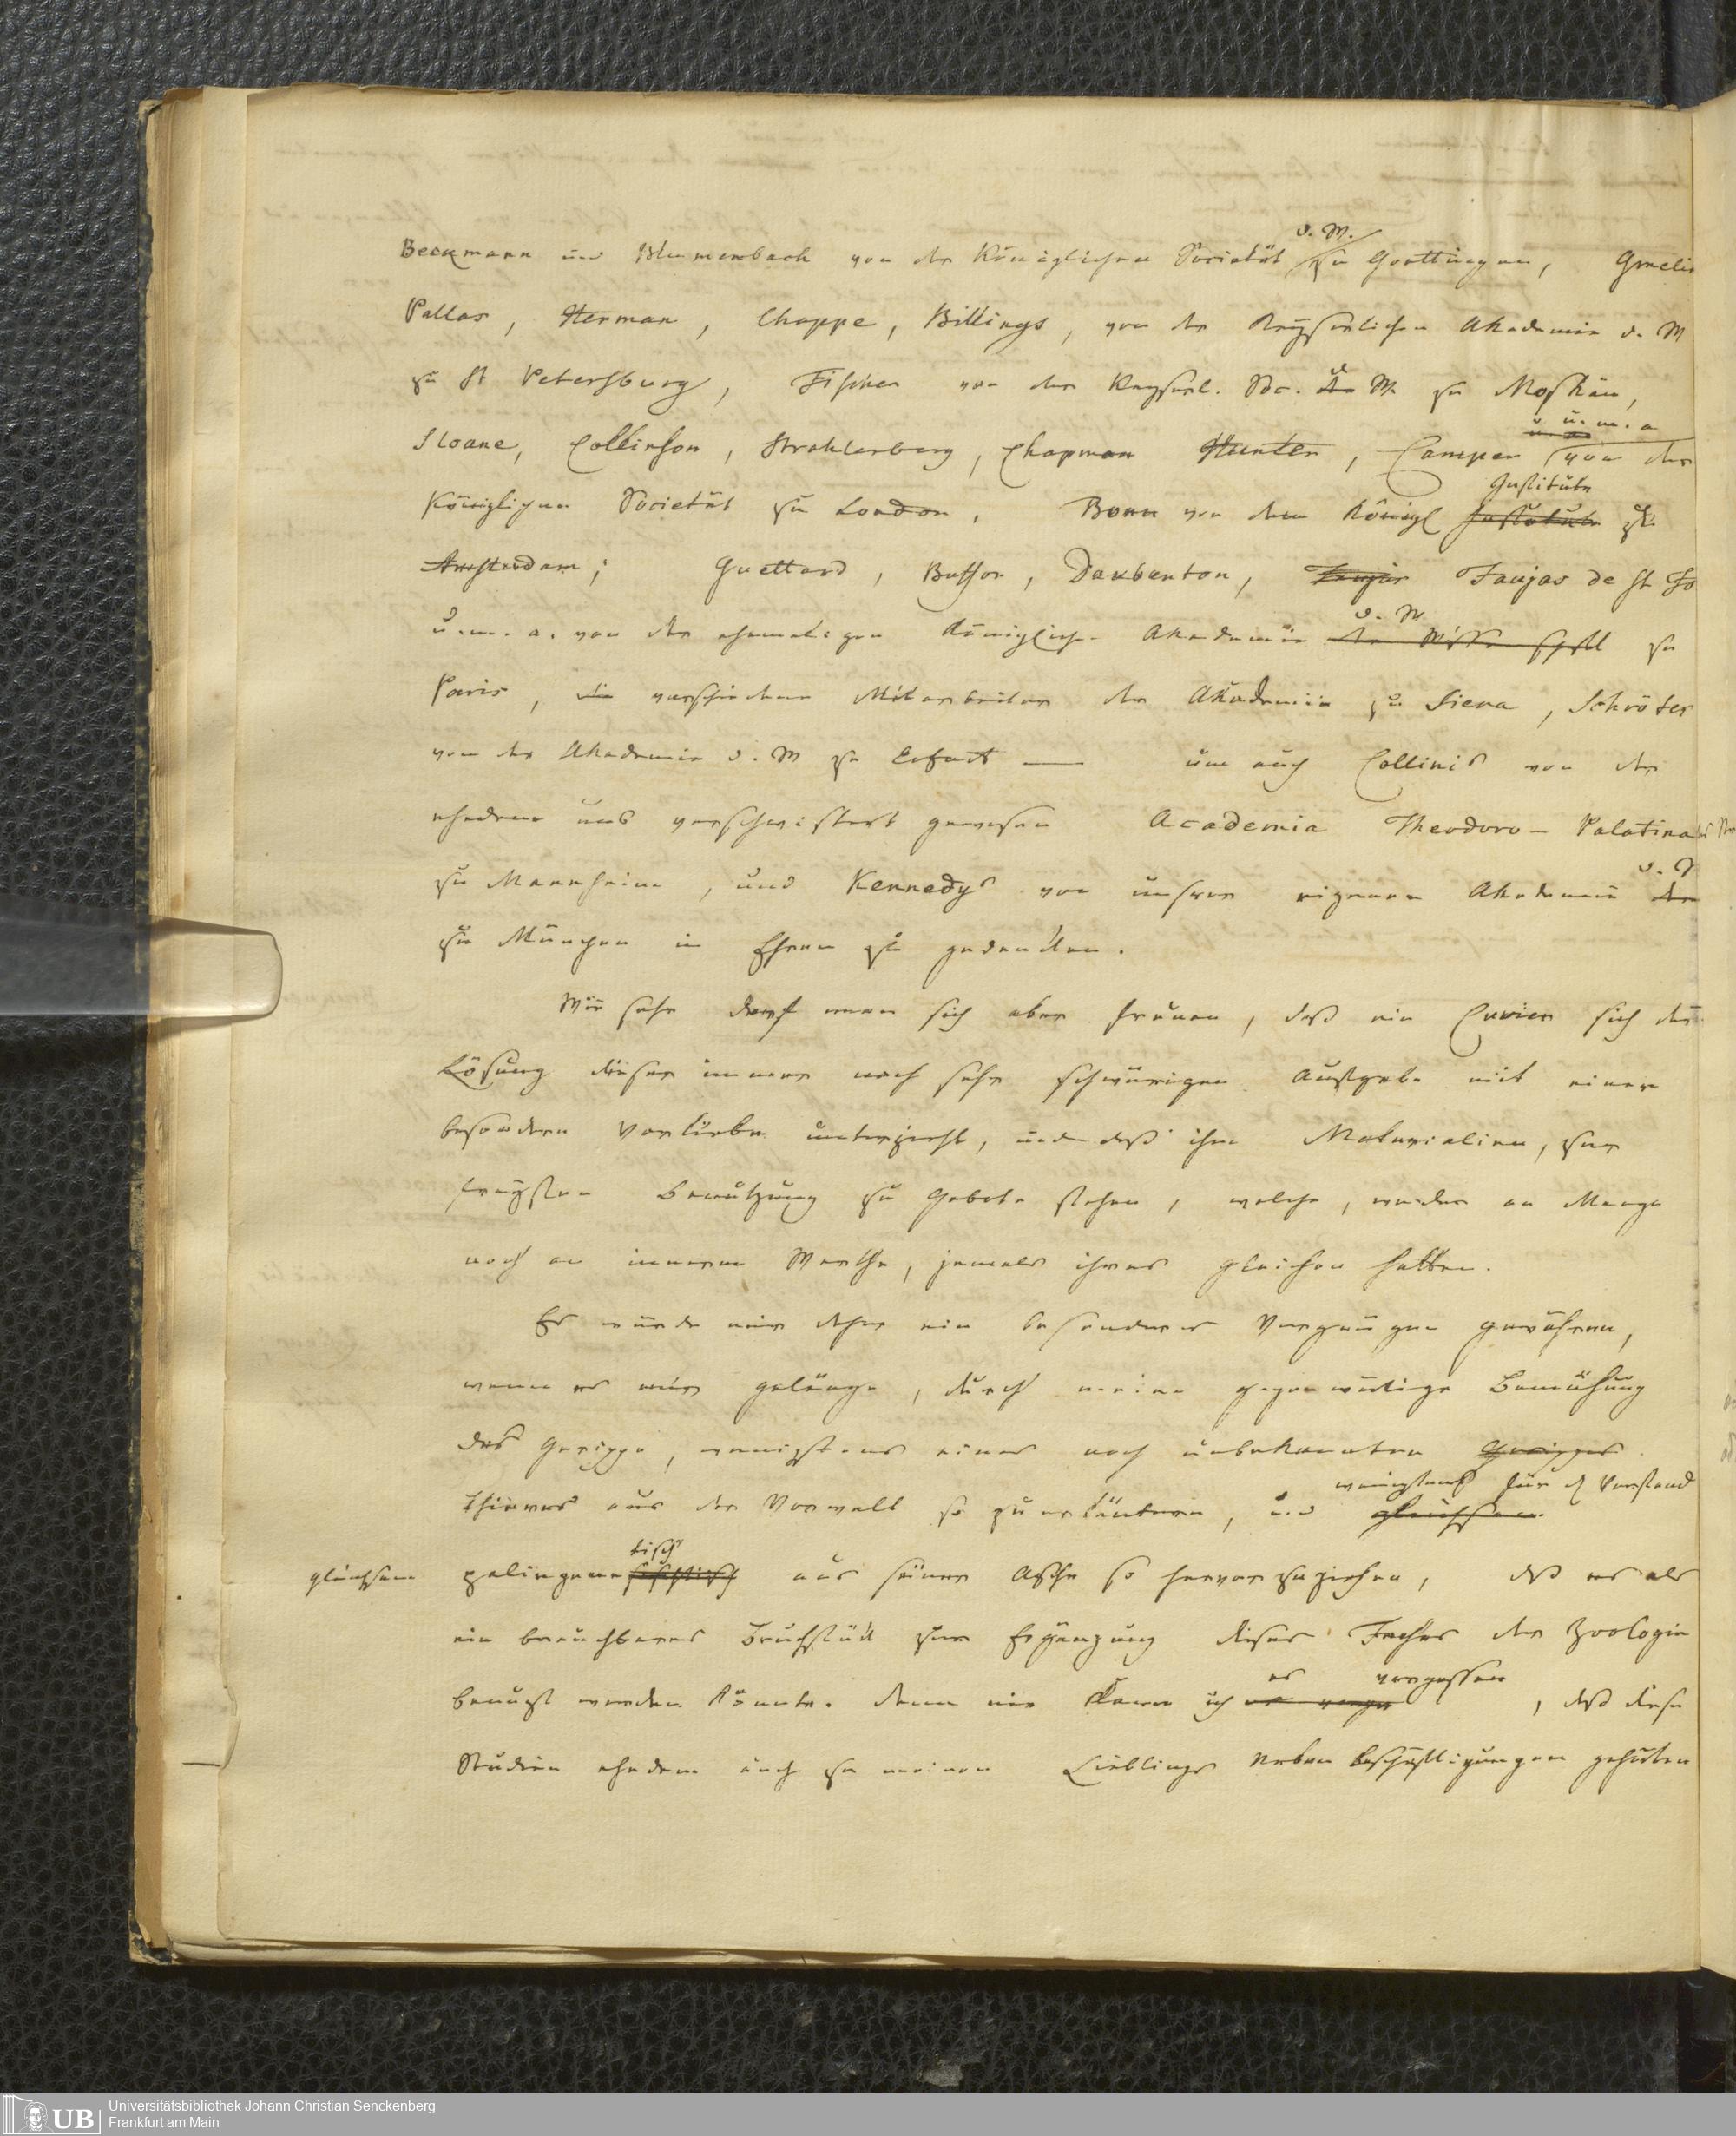 Beckmann und Blumenbach von der Königlichen Societät d. W. zu Goettingen, Gmelin
Pallas, Herman, Chappe, Billings, von der Keyserlichen Akademie d. W
zu St Petersburg, Fischer von der Keyserl. Soc. d W. zu Moskau,
Sloane, Collinson, Strahlenberg, Chapman Hunter, Camper u. m. a von der
Königlichen Societät zu London, Bonn von dem Königl Institute Institute zu
Amsterdam; Guettard, Buffon, Daubenton, Faujas Faujas de St Fo
u. m. a. von der ehemaligen Königlichen Akademie d. W der Wissenschft zu
Paris, die verschiedenen Mitarbeiter der Akademie zu Siena, Schröter
von der Akademie d. W zu Erfurt — um auch Collinis von der
ehedem uns verschwistert gewesen Academia Theodoro-Palatina
zu Mannheim, und Kennedys von unsrer eigenen Akademie der d. W
zu München in Ehren zu gedenken.
Wie sehr darf man sich aber freuen, daß ein Cuvier sich der
Lösung dieser immer noch sehr schwürigen Aufgabe mit einer
besondern Vorliebe unterzieht, und daß ihm Materialien, zur
freysten Benutzung zu Gebote stehen, welche, weder an Menge
noch an innerem Werthe, jemals ihres gleichen hatten.
Es würde mir daher ein besonderes Vergnügen gewähren,
wenn es mir gelänge, durch meine gegenwärtige Bemühung
das Gerippe, wenigstens eines noch unbekannten Gerippes
wenigstens für d Verstand
Thieres aus der Vorwelt so zu erläutern, und gleichsam
gleichsam palingenesistisch tisch aus seiner Asche so hervorzuziehen, daß es als
ein brauchbares Bruchstück zur Ergänzung dieses Faches der Zoologie
benutzt werden könnte. Denn nie kann ich es verge es vergessen, daß diese
Studien ehedem auch zu meinen Lieblings Neben beschäftigungen gehörten
Universitätsbibliothek Johann Christian Senckenberg
Frankfurt am Main
UB